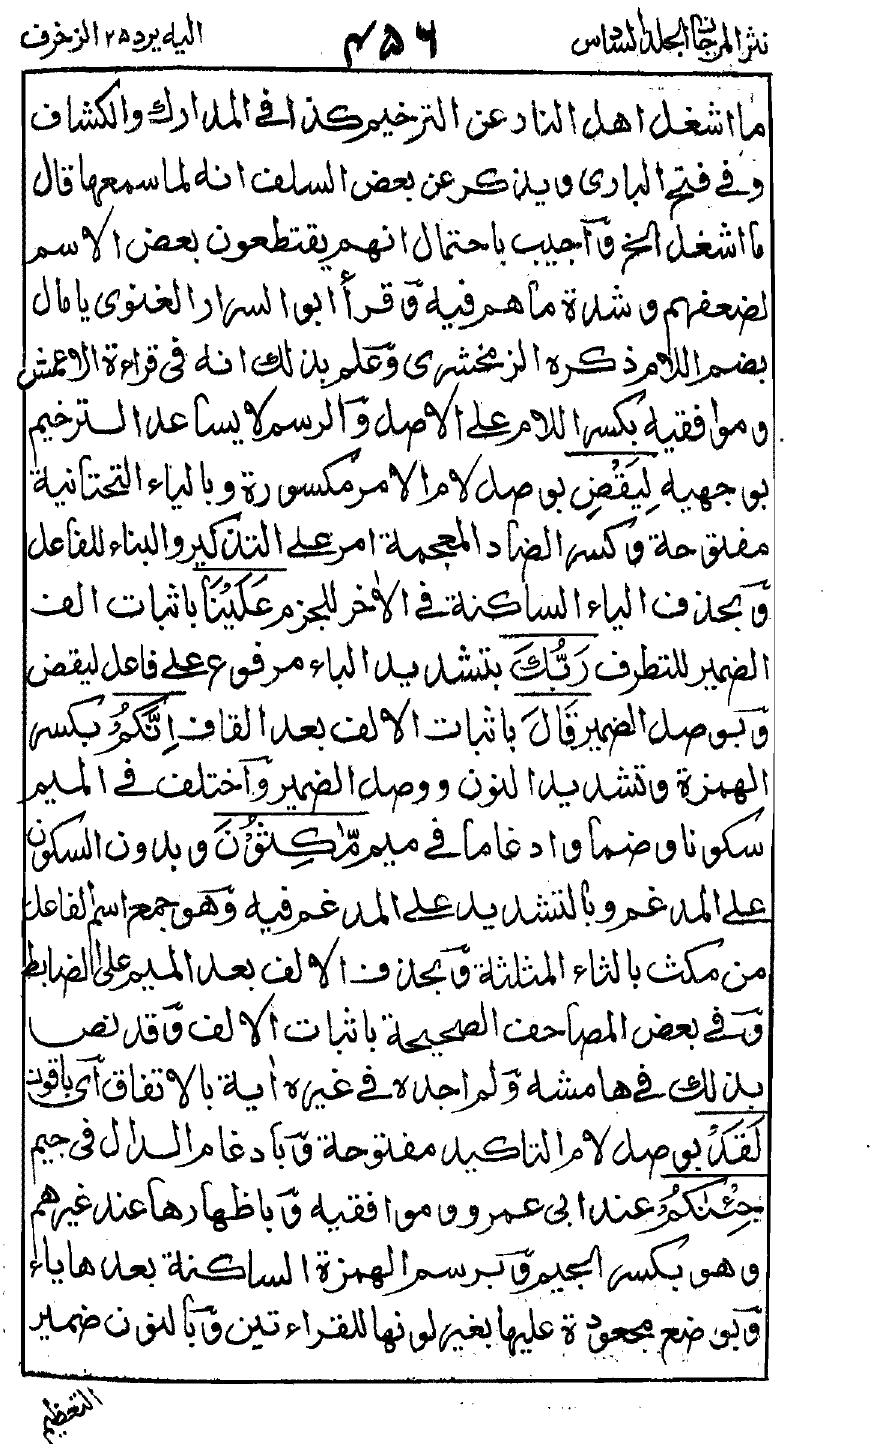 نثر المرجان المجلد السادس ٤٥٦ اليه يرد ٢٥ الزخرف
ما اشغل اهل النار عن الترخيم كذا فى المدارك والكشاف
وفى فتح البارى ويذكر عن بعض السلف انه لما سمعها قال
ما اشغل الخ وآجيب باحتمال انهم يقتطعون بعض الاسم
لضعفهم وشدة ما هم فيه وقرأ ابو السرار الغنوى يا مال
بضم اللام ذكره الزمخشرى وعلم بذلك انه فى قراءة الاعمش
وموافقيه بكسر اللام على الاصل وآلرسم لا يساعد الترخيم
بوجهيه لِيَقْضِ بوصل لام الامر مكسورة وبالياء التحتانية
مفتوحة وكسر الضاد المعجمة امر على التذكير والبناء للفاعل
وبحذف الياء الساكنة فى الاخر للجزم عَلَيْنَا باثبات الف
الضمير للتطرف رَبُّكَ بتشديد الباء مرفوع على فاعل ليقض
وبوصل الضمير قَالَ باثبات الالف بعد القاف اِنَّكُمْ بكسر
الهمزة وتشديد النون ووصل الضمير وآختلف فى الميم
سكونا وضما وادغاما فى ميم مّٰكِثُوْنَ وبدون السكون
على المدغم وبالتشديد على المدغم فيه وهو جمع اسم الفاعل
من مكث بالثاء المثلثة وبحذف الالف بعد الميم على الضابط
وفى بعض المصاحف الصحيحة باثبات الالف وقد نص
بذلك فى هامشه ولم اجده فى غيره اٰية بالاتفاق آى باقون
لَقَدْ بوصل لام التاكيد مفتوحة وبادغام الدال فى جيم
جِئْنٰكُمْ عند ابى عمرو وموافقيه وباظهارها عند غيرهم
وهو بكسر الجيم وبرسم الهمزة الساكنة بعدها ياء
وبوضع مجعودة عليها بغير لونها للقراءتين وبالنون ضمير
التعظيم